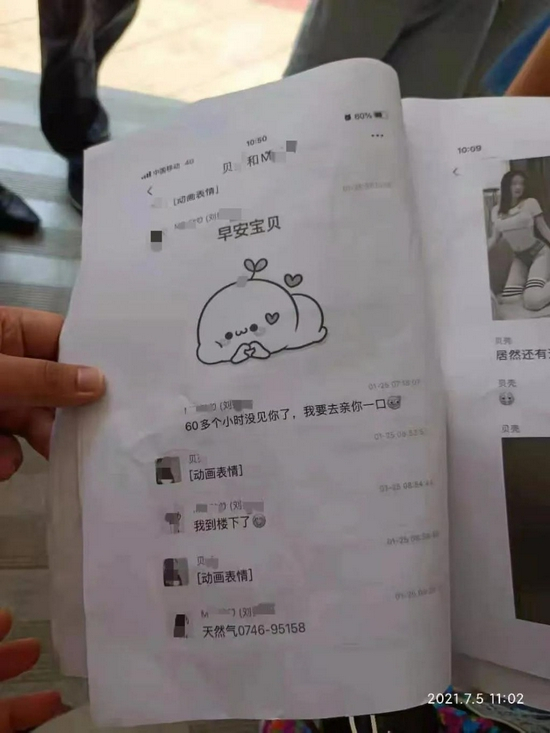 中国移动 4G
10:50
60%
贝 和M
[动画表情]
(刘
早安宝贝
(刘
60多个小时没见你了，我要去亲你一口
贝
[动画表情]
(刘
我到楼下了
贝
[动画表情]
M (刘
天然气0746-95158
10:09
贝壳
居然还有
贝壳
贝壳
2021.7.5 11:02